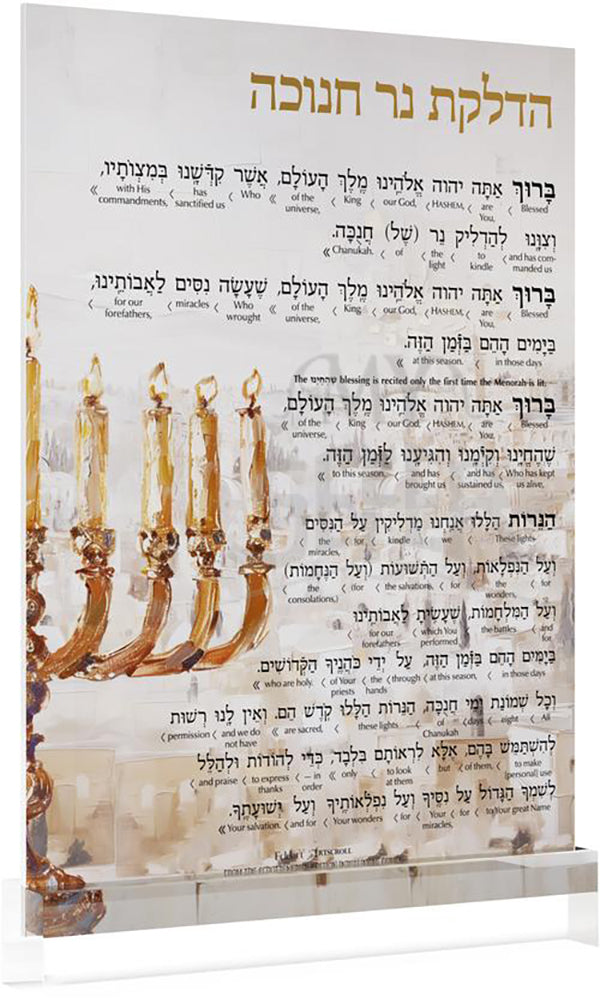 הדלקת נר חנוכה
בָּרוּךְ אַתָּה יהוה אֱלֹהֵינוּ מֶלֶךְ הָעוֹלָם, אֲשֶׁר קִדְּשָׁנוּ בְּמִצְוֹתָיו,
Blessed ‹ are You, ‹ HASHEM, ‹ our God, ‹ King ‹ of the universe, ‹ Who ‹ has sanctified us ‹ with His commandments, «
וְצִוָּנוּ לְהַדְלִיק נֵר (שֶׁל) חֲנֻכָּה.
and has commanded us ‹ to kindle ‹ the light ‹ of ‹ Chanukah. «
בָּרוּךְ אַתָּה יהוה אֱלֹהֵינוּ מֶלֶךְ הָעוֹלָם, שֶׁעָשָׂה נִסִּים לַאֲבוֹתֵינוּ,
Blessed ‹ are You, ‹ HASHEM, ‹ our God, ‹ King ‹ of the universe, ‹ Who wrought ‹ miracles ‹ for our forefathers, ‹
בַּיָּמִים הָהֵם בַּזְּמַן הַזֶּה.
in those days ‹ at this season. «
The שהחינו blessing is recited only the first time the Menorah is lit.
בָּרוּךְ אַתָּה יהוה אֱלֹהֵינוּ מֶלֶךְ הָעוֹלָם,
Blessed ‹ are You, ‹ HASHEM, ‹ our God, ‹ King ‹ of the universe, «
שֶׁהֶחֱיָנוּ וְקִיְּמָנוּ וְהִגִּיעָנוּ לַזְּמַן הַזֶּה.
Who has kept us alive, ‹ and has sustained us, ‹ and has brought us ‹ to this season. «
הַנֵּרוֹת הַלָּלוּ אֲנַחְנוּ מַדְלִיקִין עַל הַנִּסִּים
These lights ‹ we ‹ kindle ‹ for ‹ the miracles,
וְעַל הַנִּפְלָאוֹת, וְעַל הַתְּשׁוּעוֹת (וְעַל הַנֶּחָמוֹת)
for ‹ the wonders, ‹ for ‹ the salvations, ‹ (for ‹ the consolations,)
וְעַל הַמִּלְחָמוֹת, שֶׁעָשִׂיתָ לַאֲבוֹתֵינוּ
and for ‹ the battles ‹ which You performed ‹ for our forefathers
בַּיָּמִים הָהֵם בַּזְּמַן הַזֶּה, עַל יְדֵי כֹּהֲנֶיךָ הַקְּדוֹשִׁים.
in those days ‹ at this season, ‹ through ‹ the hands ‹ of Your priests ‹ who are holy. «
וְכָל שְׁמוֹנַת יְמֵי חֲנֻכָּה, הַנֵּרוֹת הַלָּלוּ קֹדֶשׁ הֵם. וְאֵין לָנוּ רְשׁוּת
All ‹ eight ‹ days ‹ of Chanukah ‹ these lights ‹ are sacred, « and we do not have ‹ permission ‹
לְהִשְׁתַּמֵּשׁ בָּהֶם, אֶלָּא לִרְאוֹתָם בִּלְבָד, כְּדֵי לְהוֹדוֹת וּלְהַלֵּל
to make [personal] use ‹ of them, ‹ but ‹ to look at them ‹ only ‹ – in order ‹ to express thanks ‹ and praise ‹
לְשִׁמְךָ הַגָּדוֹל עַל נִסֶּיךָ וְעַל נִפְלְאוֹתֶיךָ וְעַל יְשׁוּעָתֶךָ.
to Your great Name ‹ for ‹ Your miracles, ‹ for ‹ Your wonders ‹ and for ‹ Your salvation. «
ARTSCROLL